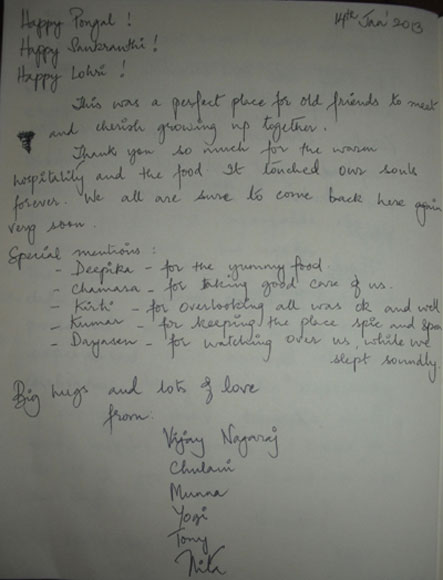 Happy Pongal !
14th Jan' 2013
Happy Sankranthi !
Happy Lohri !
This was a perfect place for old friends to meet
and cherish growing up together.
Thank you so much for the warm
hospitality and the food. It touched our souls
forever. We all are sure to come back here again
very soon.
Special mentions :
- Deepika - for the yummy food.
- Chamara - for taking good care of us.
- Kirthi - for overlooking all was ok and well
- Kumar - for keeping the place spic and span
- Dayasen - for watching over us, while we
slept soundly.
Big hugs and lots of love
from:
Vijay Nagaraj
Chulani
Munna
Yogi
Tony